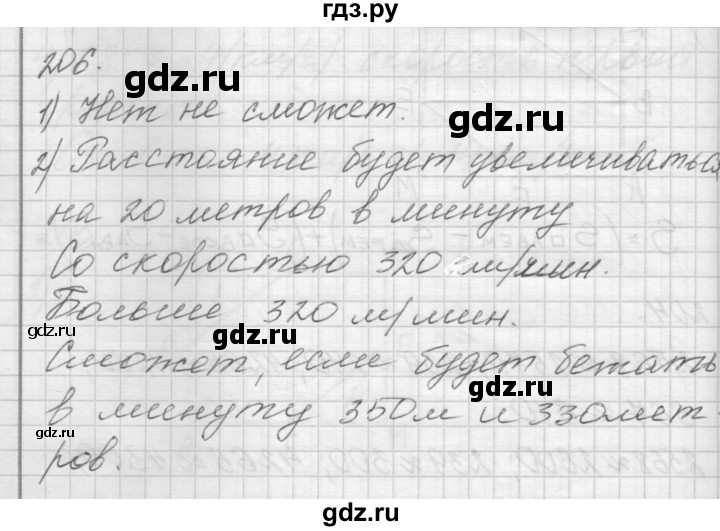 гдз.ру
206.
gdz.ru
1) Нет не сможет.
gdz.ru
2) Расстояние будет увеличиваться
на 20 метров в минуту
gdz.ru
Со скоростью 320 м/мин.
Больше 320 м/мин.
gdz.ru
gdz.ru
Сможет, если будет бежать
gdz.ru
в минуту 350м и 330мет
gdz.ru
ров.
gdz.ru
gdz.ru